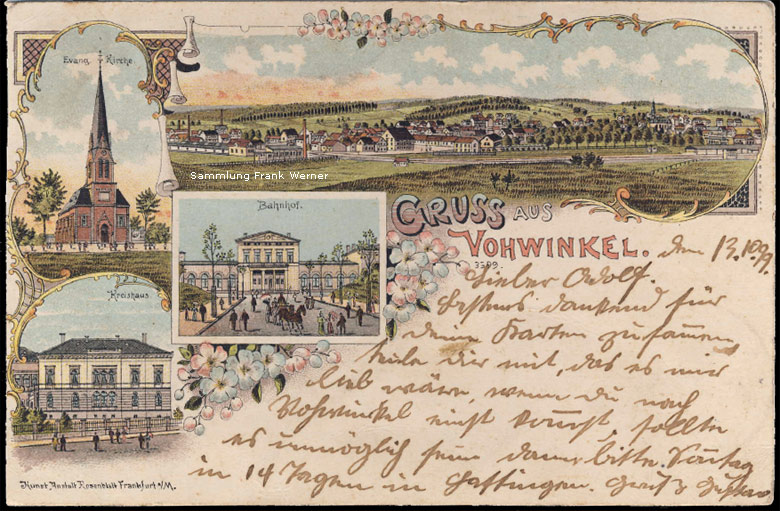 Evang. Kirche
Sammlung Frank Werner
Bahnhof.
GRUSS AUS
VOHWINKEL.
3599.
Kreishaus
Kunst Anstalt Rosenblatt Frankfurt a/M.
den 13. 10. 
Lieber Adolf.
dankend für
deine Karten zusammen,
teile dir mit, das es mir
lieb wäre, wenn du nach
Vohwinkel nicht kommst, sollte
es unmöglich sein dann bitte. Sontag
in 14 Tagen in Hattingen. Gruß Gustav